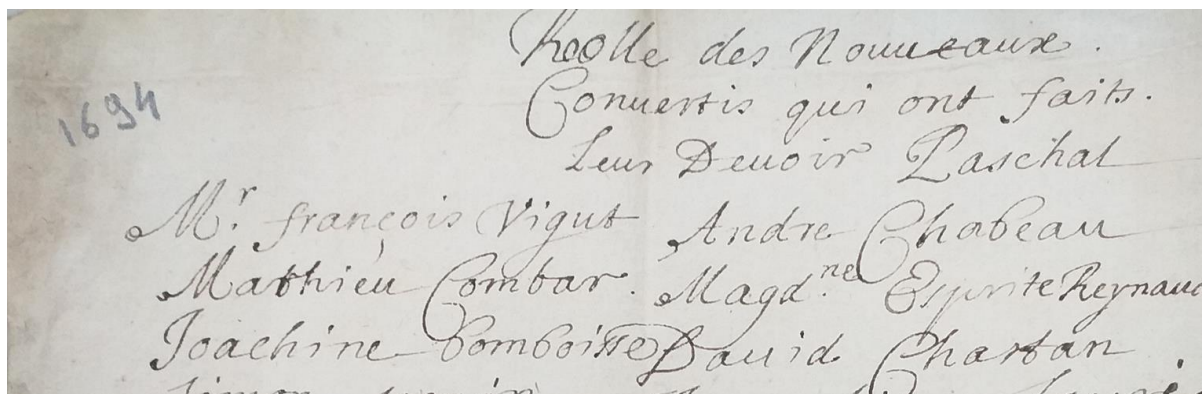 Roolle des Nouueaux.
1694
Conuertis qui ont faits.
Leur Deuoir Paschal
Mr. françois Vigut Andre Chabeau
Mathieu Combar. Magd.ne Esprite Reynaud
Joachine bomboisse Dauid Chartan
Simon